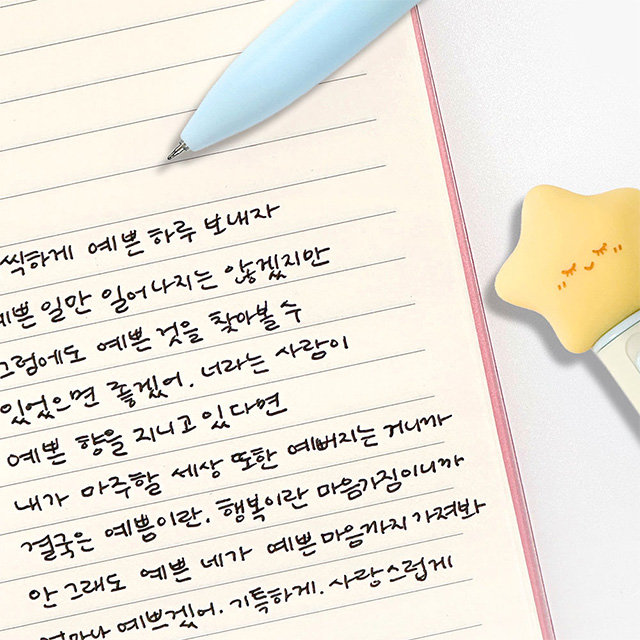 씩하게 예쁜 하루 보내자
예쁜 일만 일어나지는 않겠지만
그럼에도 예쁜 것을 찾아볼 수
있었으면 좋겠어. 너라는 사람이
예쁜 향을 지니고 있다면
내가 마주할 세상 또한 예뻐지는 거니까
결국은 예쁨이란. 행복이란 마음가짐이니까
안 그래도 예쁜 네가 예쁜 마음까지 가져봐
얼마나 예쁘겠어. 기특하게. 사랑스럽게